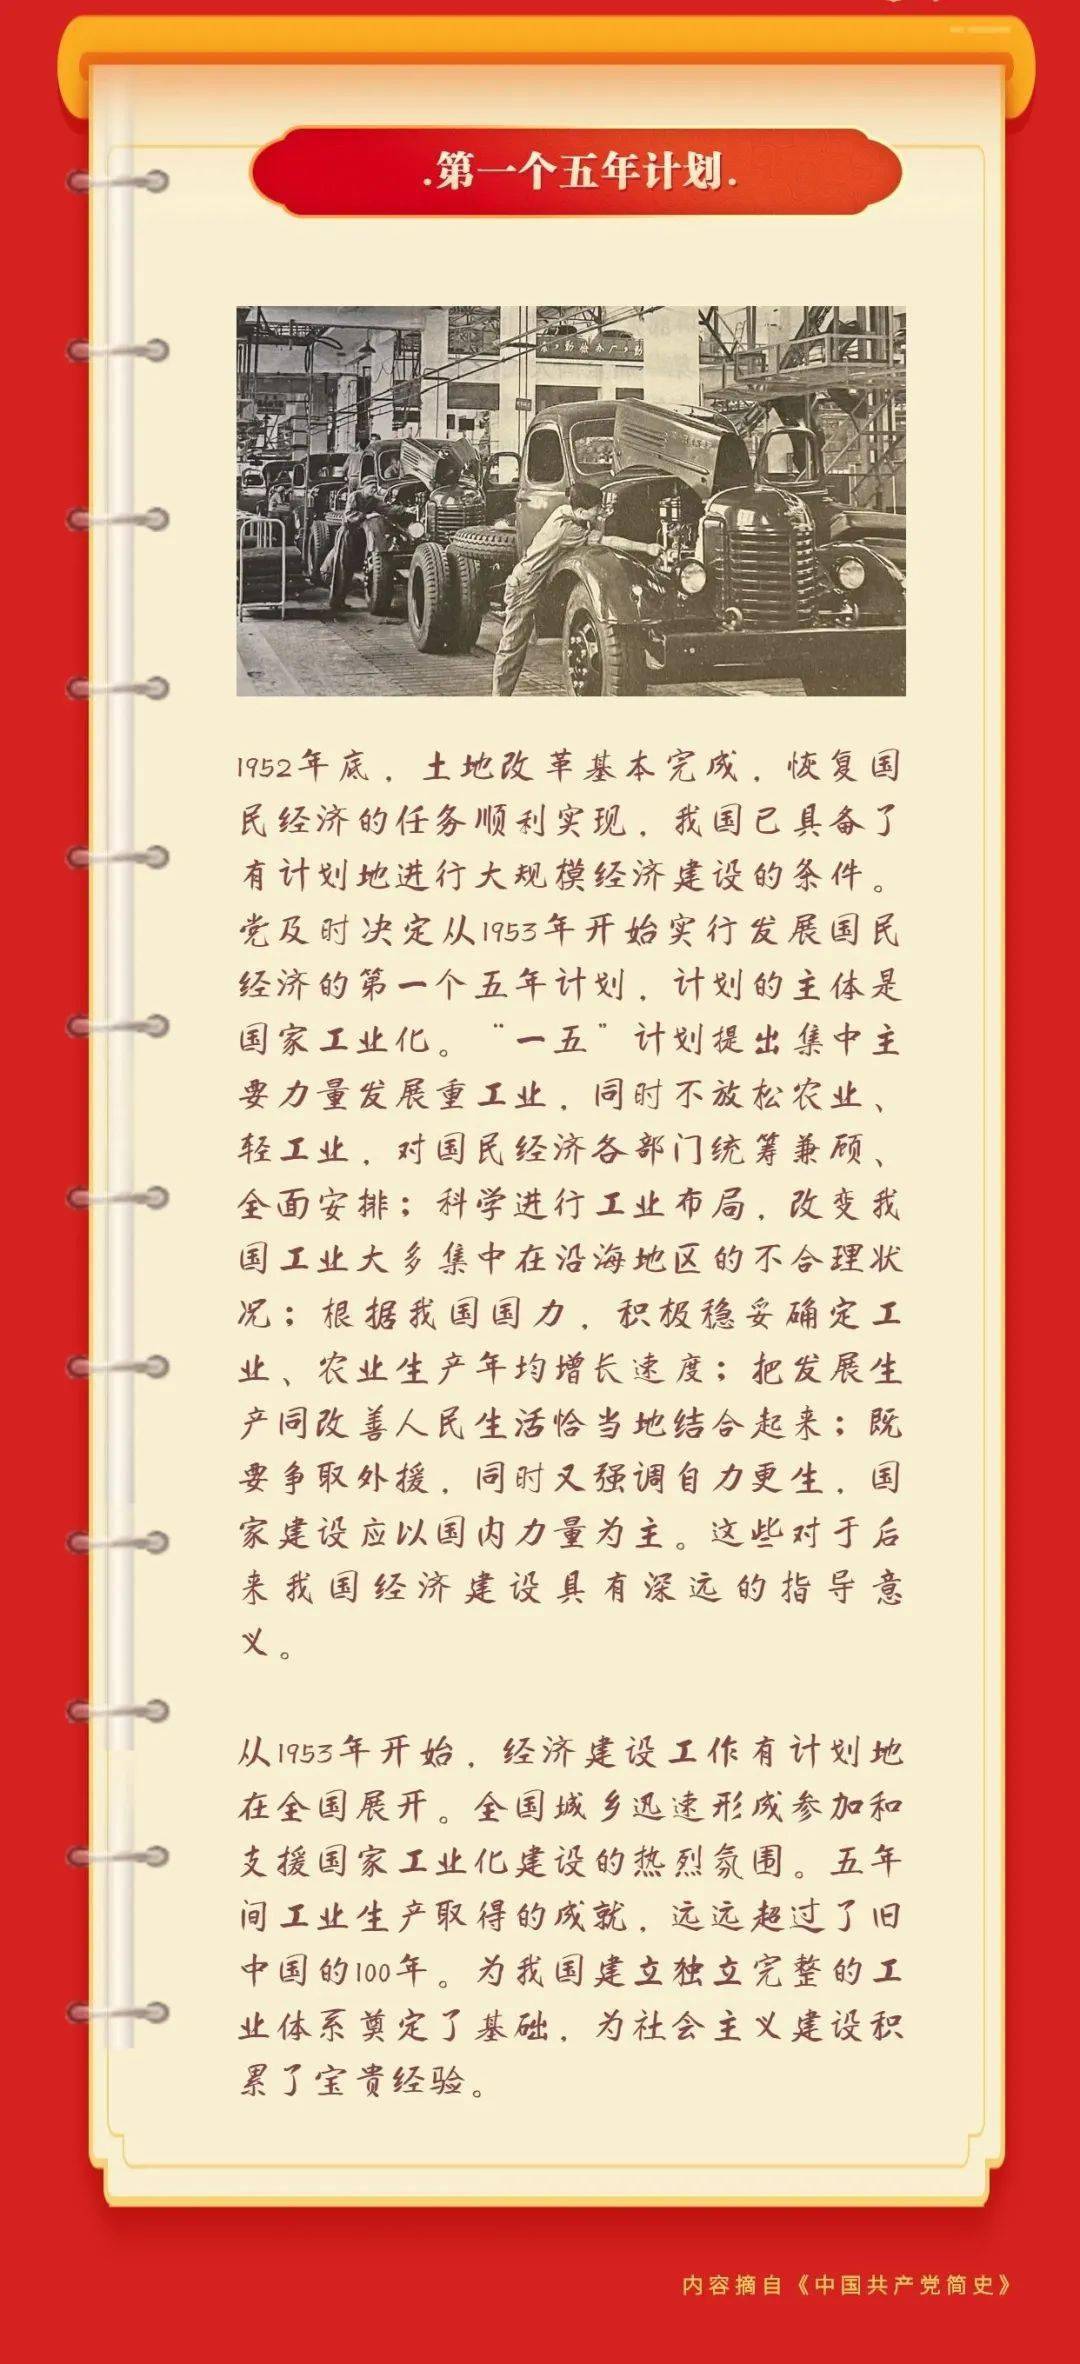 .第一个五年计划.
1952年底，土地改革基本完成，恢复国
民经济的任务顺利实现，我国已具备了
有计划地进行大规模经济建设的条件。
党及时决定从1953年开始实行发展国民
经济的第一个五年计划，计划的主体是
国家工业化。“一五”计划提出集中主
要力量发展重工业，同时不放松农业、
轻工业，对国民经济各部门统筹兼顾、
全面安排；科学进行工业布局，改变我
国工业大多集中在沿海地区的不合理状
况；根据我国国力，积极稳妥确定工
业、农业生产年均增长速度；把发展生
产同改善人民生活恰当地结合起来；既
要争取外援，同时又强调自力更生，国
家建设应以国内力量为主。这些对于后
来我国经济建设具有深远的指导意
义。
从1953年开始，经济建设工作有计划地
在全国展开。全国城乡迅速形成参加和
支援国家工业化建设的热烈氛围。五年
间工业生产取得的成就，远远超过了旧
中国的100年。为我国建立独立完整的工
业体系奠定了基础，为社会主义建设积
累了宝贵经验。
内容摘自《中国共产党简史》